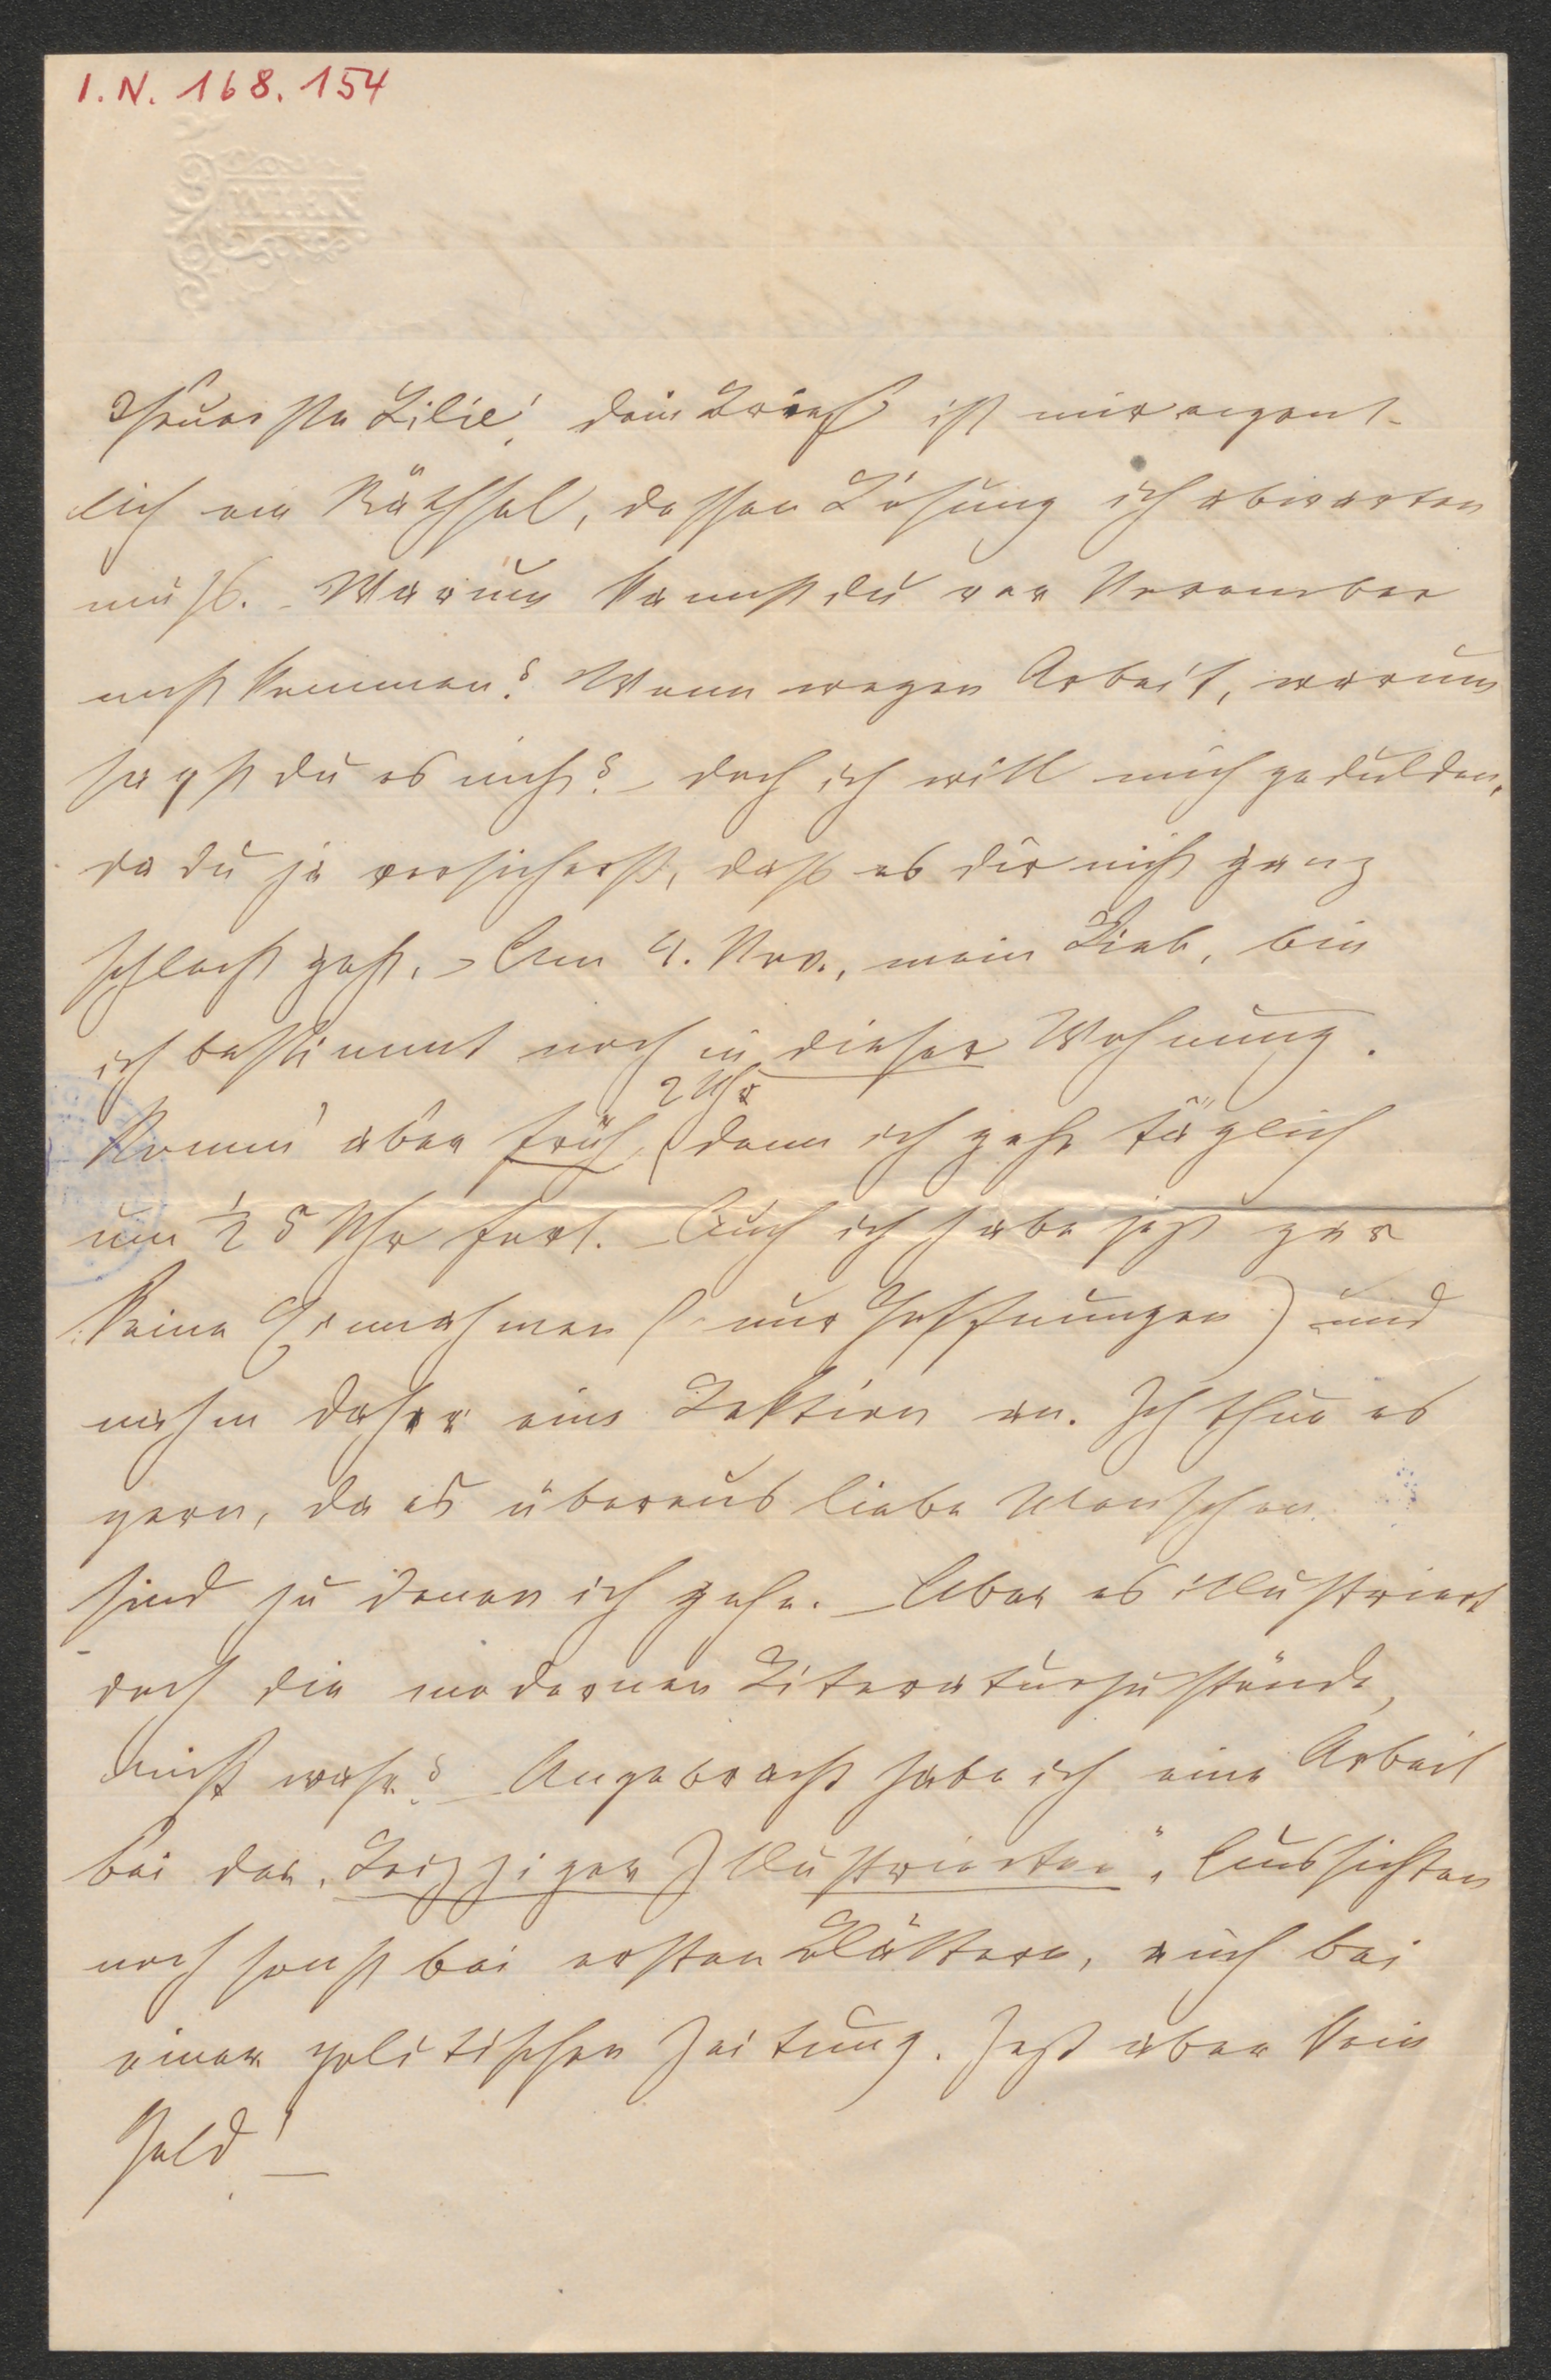 I.N. 168.154
WIEN
Theuerste Lilie! Dein Brief ist mir eigent-
lich ein Räthsel, dessen Lösung ich abwarten
muß. – Warum kannst du vor November
nicht kommen? Wenn wegen Arbeit, warum
sagst du es nicht? – doch ich will mich gedulden,
da du ja versicherst, daß es dir nicht ganz
schlecht geht. – Am 4. Nov., mein Lieb, bin
ich bestimmt noch in dieser Wohnung.
2 Uhr
Komm' aber früh, denn ich gehe täglich
um ½ 5 Uhr fort. – Auch ich habe jetzt gar
keine Einnahmen (nur Hoffnungen) und
nahm daher eine Lektion an. Ich thue es
gern, da es überaus liebe Menschen
sind zu denen ich gehe. – Aber es illustriert
doch die modernen Literaturzustände,
nicht wahr? – Angebracht habe ich eine Arbeit
bei der „Leipziger Illustrierten", Aussichten
noch sonst bei ersten Blättern, auch bei
einer politischen Zeitung. Jetzt aber kein
Geld! –